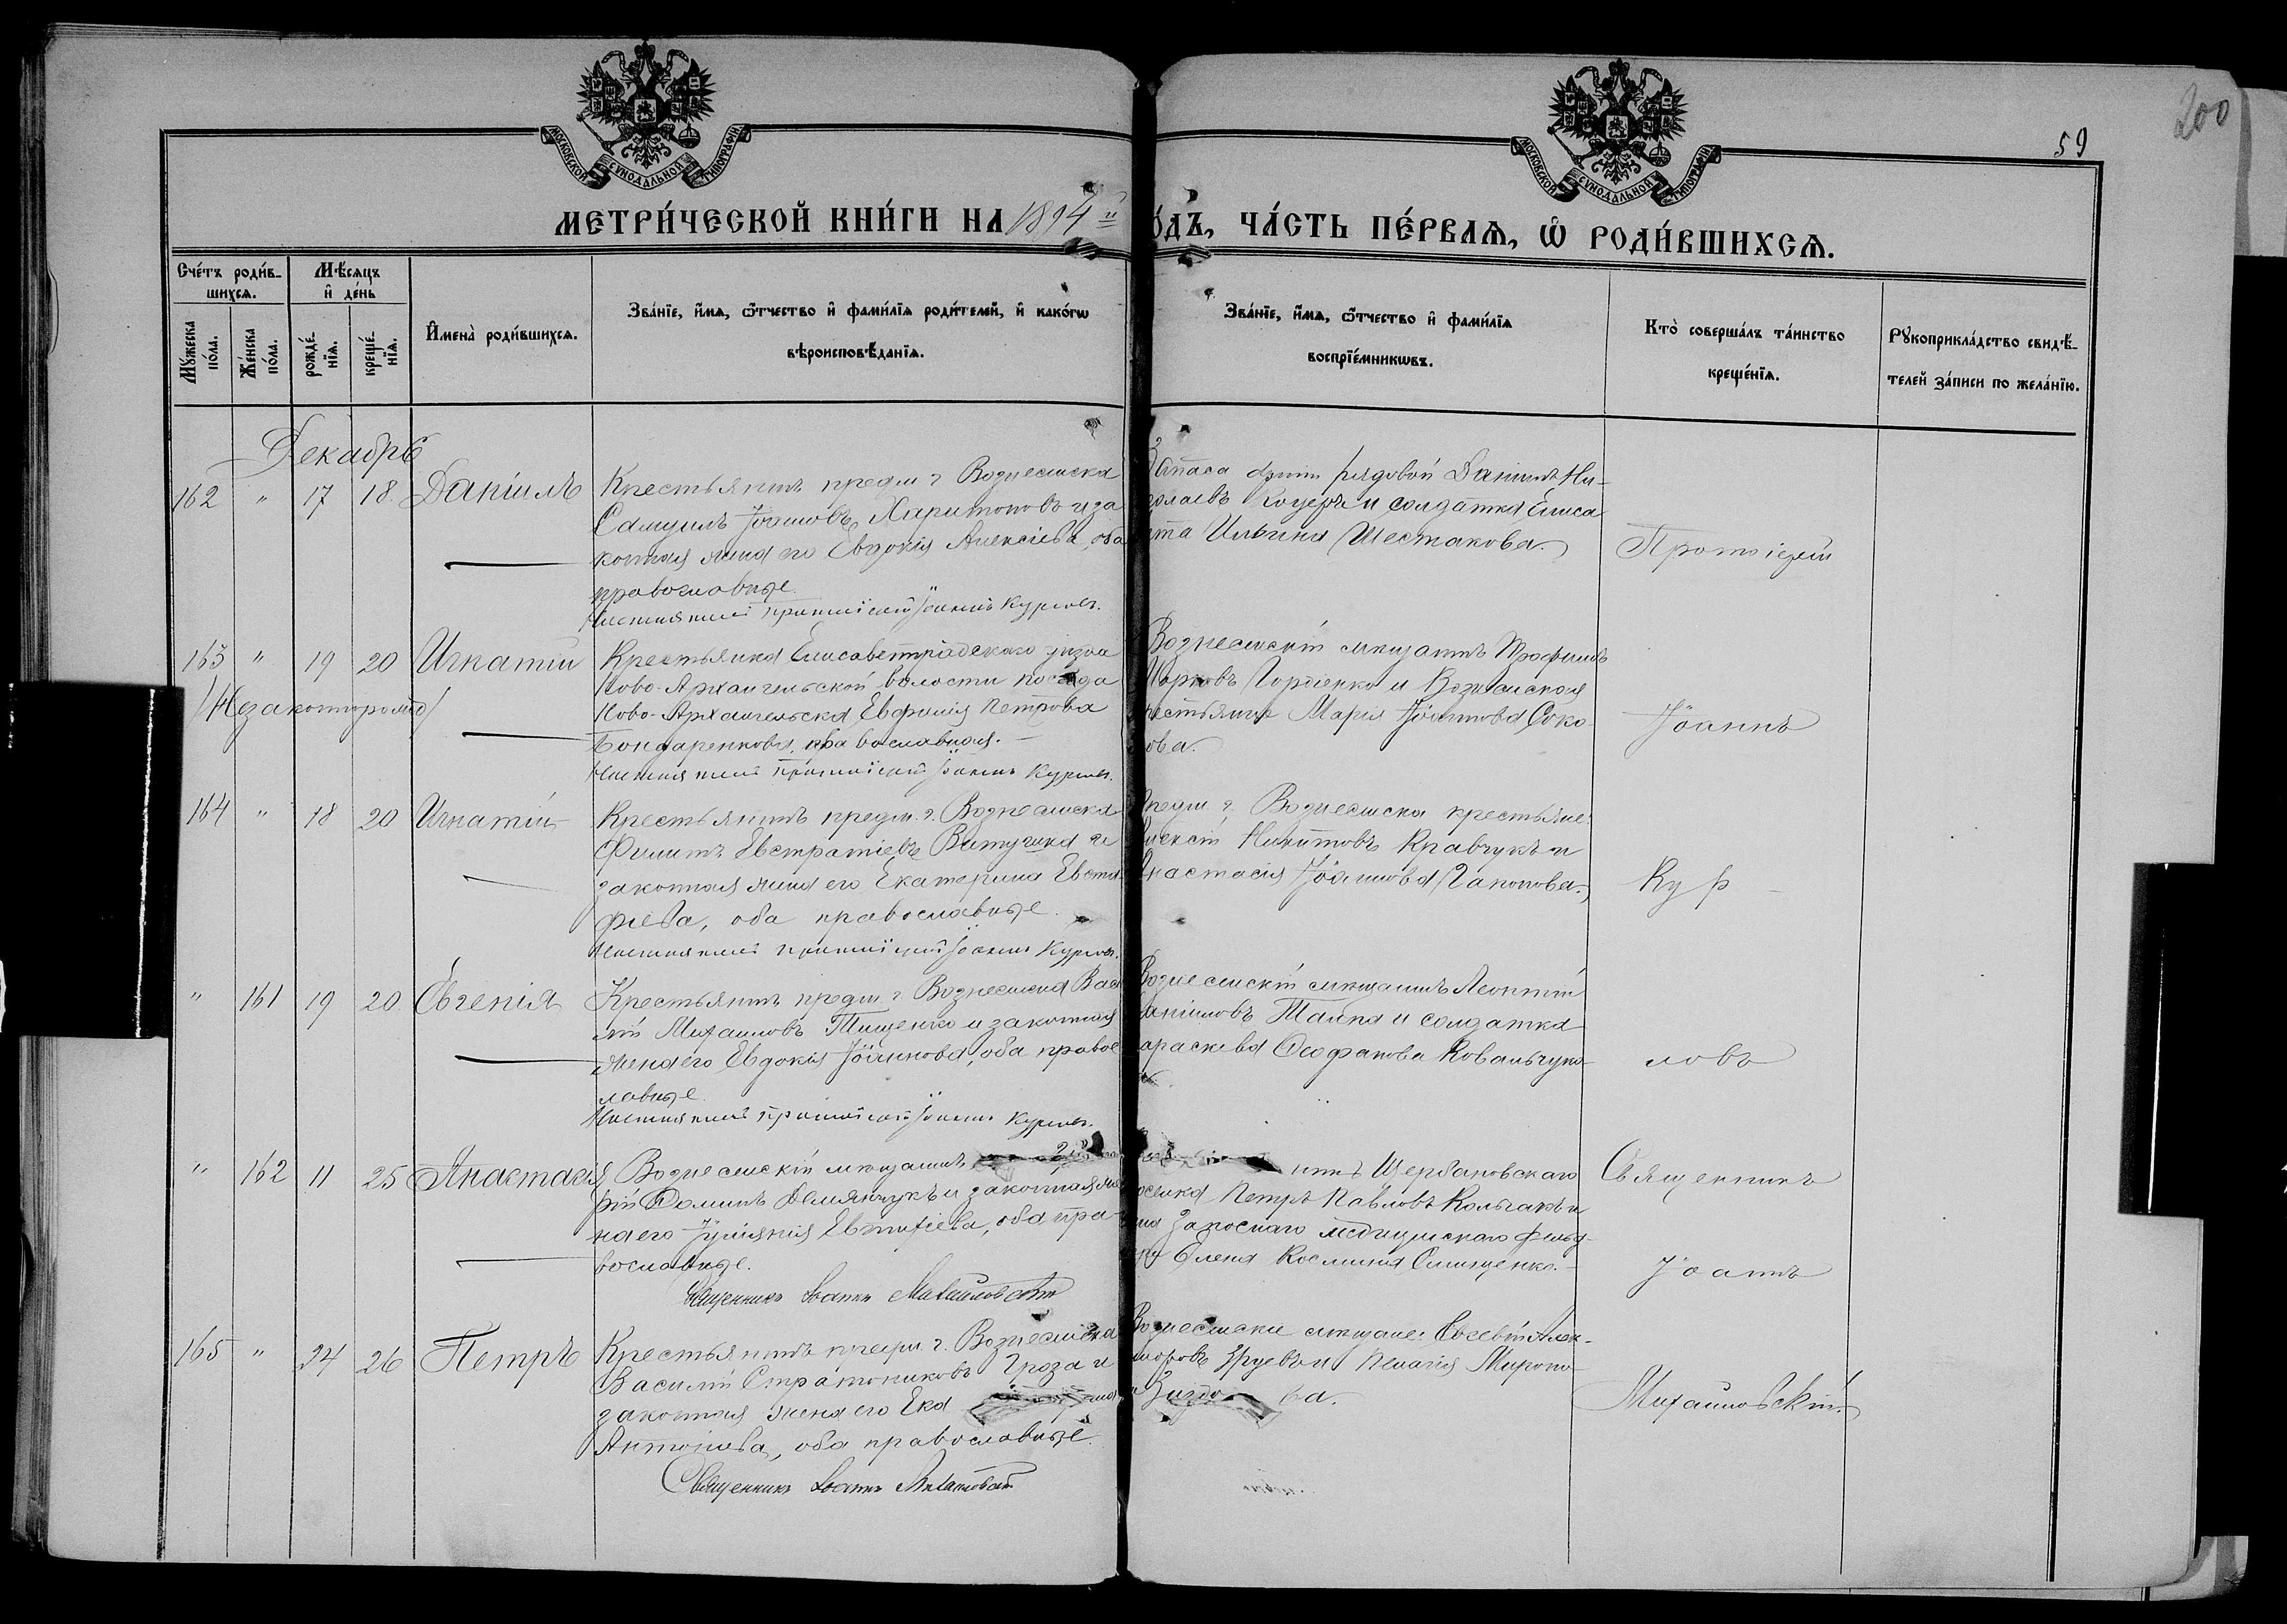 200
59
МОСКОВСКОЙ СѴНОДАЛЬНОЙ ТИПОГРАФІИ
МОСКОВСКОЙ СѴНОДАЛЬНОЙ ТИПОГРАФІИ
МЕТРИ́ЧЕСКОЙ КНИ́ГИ НА 1894 й
О́ДЪ, ЧА́СТЬ ПЕ́РВАѦ, Ѡ҆ РОДИ́ВШИХСѦ.
Сче́тъ роди́в-
шихсѧ.
Мꙋ́жеска по́ла.
Же́нска по́ла.
Мѣ́сѧцъ и҆ де́нь
рожде́-нїѧ.
креще́-нїѧ.
И҆мена̀ роди́вшихсѧ.
Зва́нїе, и҆́мѧ, ѻ҆́тчество и҆ фами́лїѧ роди́телей, и҆ како́гѡ
вѣроисповѣ́данїѧ.
Зва́нїе, и҆́мѧ, ѻ҆́тчество и҆ фами́лїѧ
воспрїе́мникѡвъ.
Кто̀ соверша́лъ та́инство
креще́нїѧ.
Рꙋкоприкла́дство свидѣ́-
телей за́писи по жела́нїю.
Декабрь
162 " 17 18 Даніилъ
Крестьянинъ предм. г. Вознесенска
Самуилъ Іоанновъ Харитоновъ и за
конная жена его Евдокія Алексіева, оба
православные.
Протоіерей Іоаннъ Курловъ.
Запаса рядовой Даніилъ Ни-
колаевъ и солдатка Елиса
та Ильина Шестакова.
Протоіерей
163 " 19 20 Игнатій
/Незаконнорожд/
Крестьянка Елисаветградскаго уѣзда
Ново-Архангельской волости посада
Ново-Архангельска Евфимія Петрова
Бондаренкова, православная.
Протоіерей Іоаннъ Курловъ.
Вознесенскій мѣщанинъ Трофимъ
Марковъ Гордіенко и Вознесенская
крестьянка Марія Іоаннова Соко
ова.
Іоаннъ
164 " 18 20 Игнатій
Крестьянинъ предм. г. Вознесенска
Филиппъ Евстратіевъ и
законная жена его Екатерина Евста
фіева, оба православные.
Протоіерей Іоаннъ Курловъ.
Предм. г. Вознесенска крестьяне:
Алексій Никитовъ Кравчукъ и
Анастасія Іоаннова Гапонова.
Кур-
" 161 19 20 Евгенія
Крестьянинъ предм. г. Вознесенска Васи
лій Михаиловъ Тищенко и законная
жена его Евдокія Іоаннова, оба правос
лавные.
Протоіерей Іоаннъ Курловъ.
Вознесенскій мѣщанинъ Леонтій
Даніиловъ и солдатка
Параскева Ѳеофанова Ковальчуко-
ловъ
" 162 11 25 Анастасія
Вознесенскій мѣщанинъ
рій Ѳоминъ Демянчукъ и законная же
на его Іуліанія Евтихіева, оба пра-
вославные.
Священникъ Іоаннъ Михайловскій
инъ Щербановскаго
Петръ Павловъ Колчакъ и
запаснаго медицинскаго фельд-
Елена Космина Слищенко.
Священникъ
Іоаннъ
165 " 24 26 Петръ
Крестьянинъ предм. г. Вознесенска
Василій Стратониковъ Гроза и
законная жена его Ека
Антоніева, оба православные.
Священникъ Іоаннъ Михайловскій
Вознесенские мѣщане: Евсевій Алек-
и Пелагія Мироно-
ва.
Михайловскій.